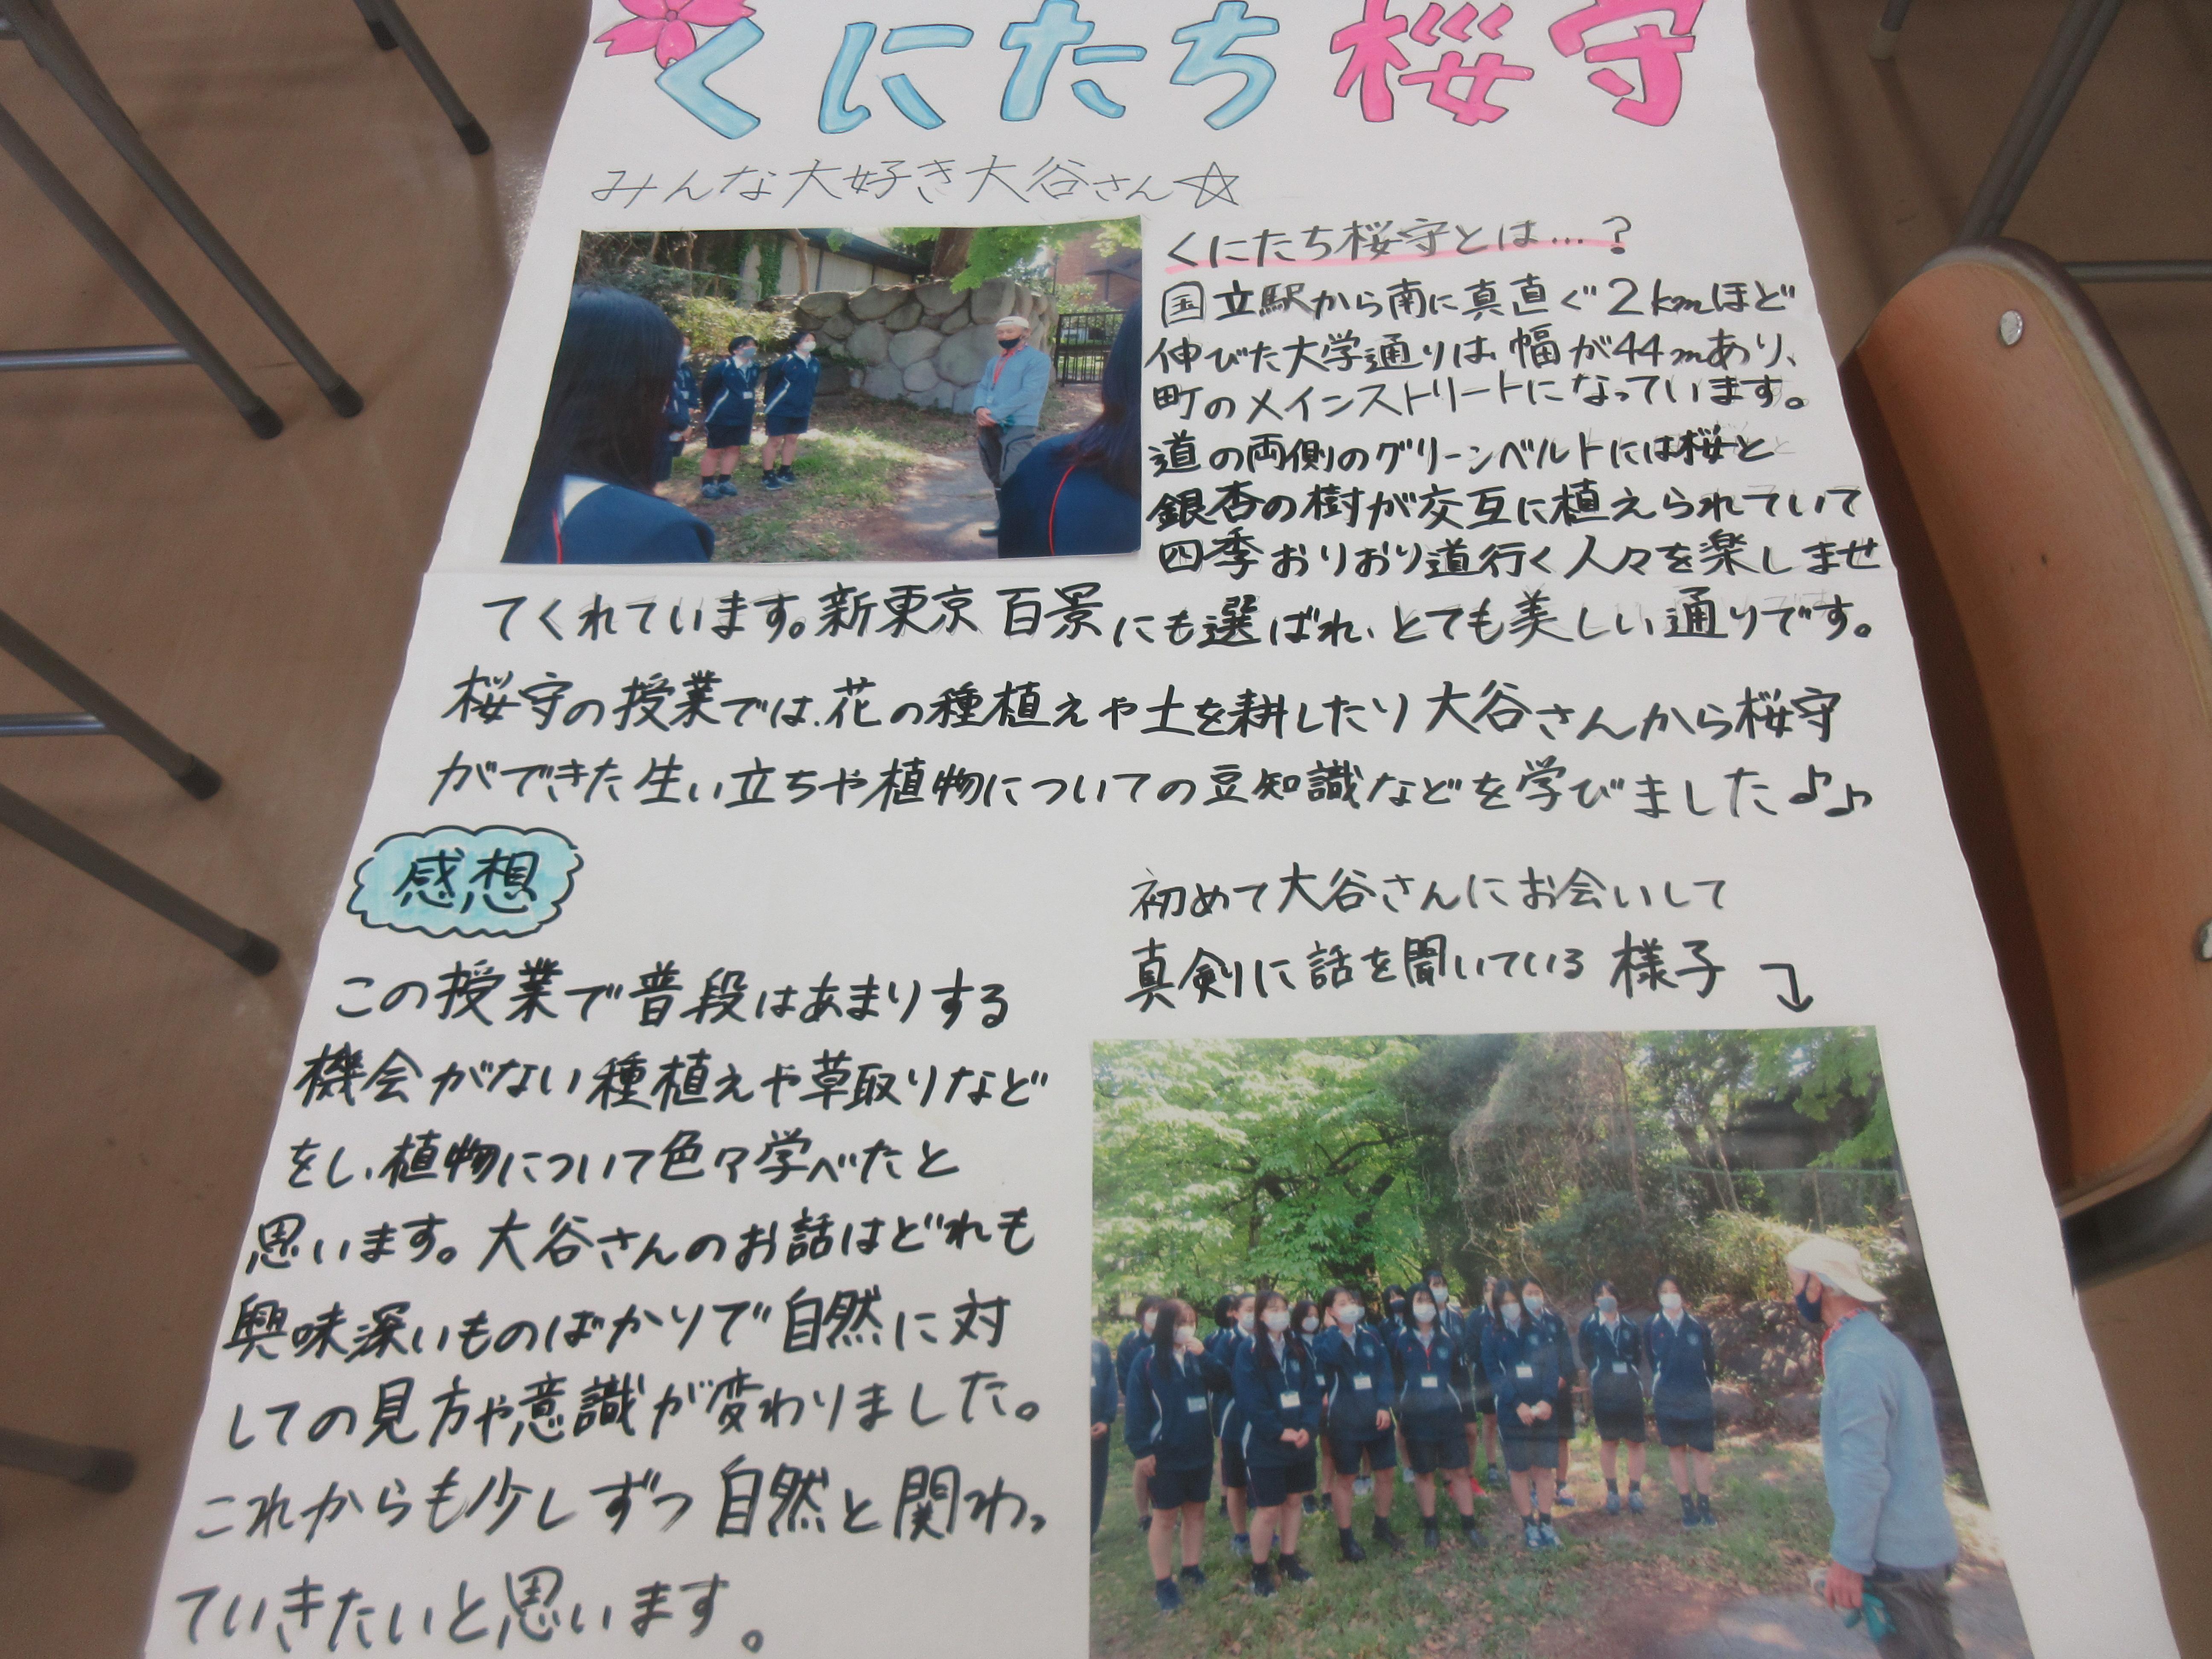 くにたち桜守
みんな大好き大谷さん☆
くにたち桜守とは…?
国立駅から南に真直ぐ2kmほど
伸びた大学通りは、幅が44mあり、
町のメインストリートになっています。
道の両側のグリーンベルトには桜と
銀杏の樹が交互に植えられていて
四季おりおり道行く人々を楽しませ
てくれています。新東京百景にも選ばれ、とても美しい通りです。
桜守の授業では、花の種植えや土を耕したり大谷さんから桜守
ができた生い立ちや植物についての豆知識などを学びました♪♪
感想
この授業で普段はあまりする
機会がない種植えや草取りなど
をし、植物について色々学べたと
思います。大谷さんのお話はどれも
興味深いものばかりで自然に対
しての見方や意識が変わりました。
これからも少しずつ自然と関わっ
ていきたいと思います。
初めて大谷さんにお会いして
真剣に話を聞いている様子